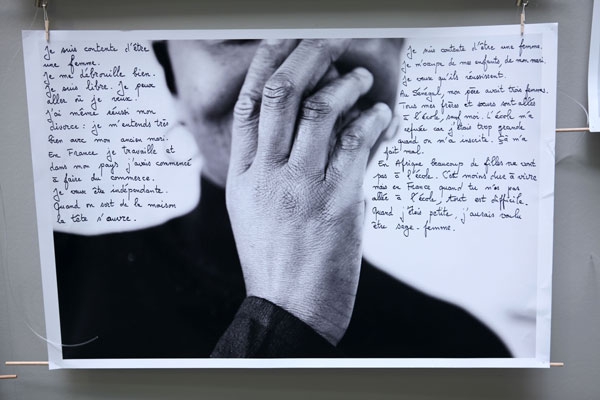 Je suis contente d'être
une femme.
Je me débrouille bien.
Je suis libre. Je peux
aller où je veux.
J'ai même réussi mon
divorce : je m'entends très
bien avec mon ancien mari.
En France je travaille et
dans mon pays j'avais commencé
à faire du commerce.
Je veux être indépendante.
Quand on sort de la maison
la tête s'ouvre.
Je suis contente d'être une femme.
Je m'occupe de mes enfants, de mon mari.
Je veux qu'ils réussissent.
Au Sénégal, mon père avait trois femmes.
Tous mes frères et sœurs sont allés
à l'école, sauf moi. L'école m'a
refusée car j'étais trop grande
quand on m'a inscrite. Ça m'a
fait mal.
En Afrique beaucoup de filles ne vont
pas à l'école. C'est moins dur à vivre
mais en France quand tu n'es pas
allée à l'école, tout est difficile.
Quand j'étais petite, j'aurais voulu
être sage-femme.